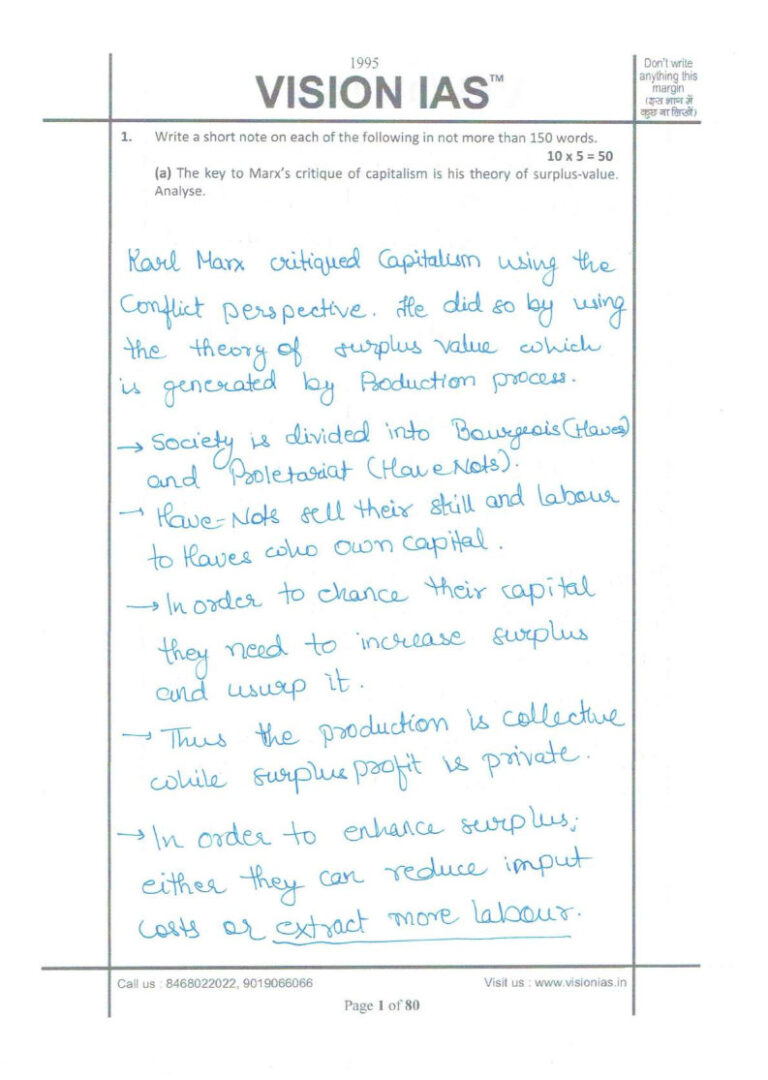 1995
VISION IAS™
Don't write
anything this
margin
(इस भाग में
कुछ ना लिखें)
1. Write a short note on each of the following in not more than 150 words.
10 x 5 = 50
(a) The key to Marx's critique of capitalism is his theory of surplus-value.
Analyse.
Karl Marx critiqued Capitalism using the
Conflict perspective. He did so by using
the theory of surplus value which
is generated by Production process.
→ Society is divided into Bourgeois (Haves)
and Proletariat (Have Nots).
→ Have-Nots sell their skill and labour
to Haves who own capital.
→ In order to chance their capital
they need to increase surplus
and usurp it.
→ Thus the production is collective
while surplus profit is private.
→ In order to enhance surplus;
either they can reduce imput
costs or extract more labour.
Call us : 8468022022, 9019066066
Visit us : www.visionias.in
Page 1 of 80